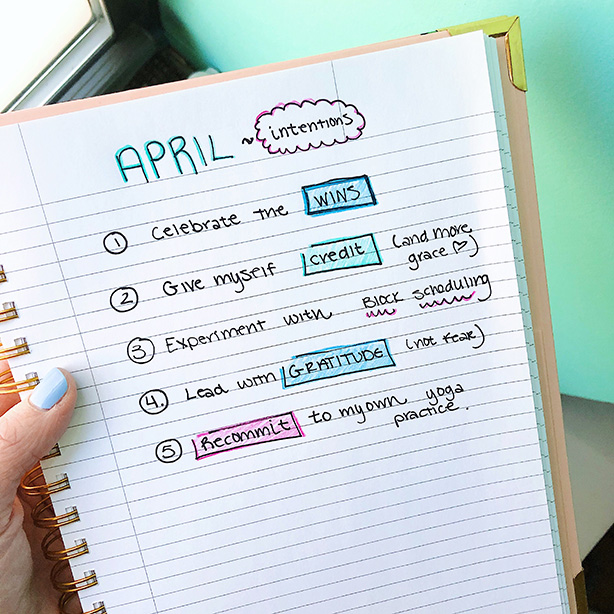 APRIL ~ intentions
① Celebrate the WINS
② Give myself credit (and more
grace ♡)
③ Experiment with BLOCK scheduling
④. Lead with GRATITUDE (not fear)
⑤ Recommit to my own yoga
practice.